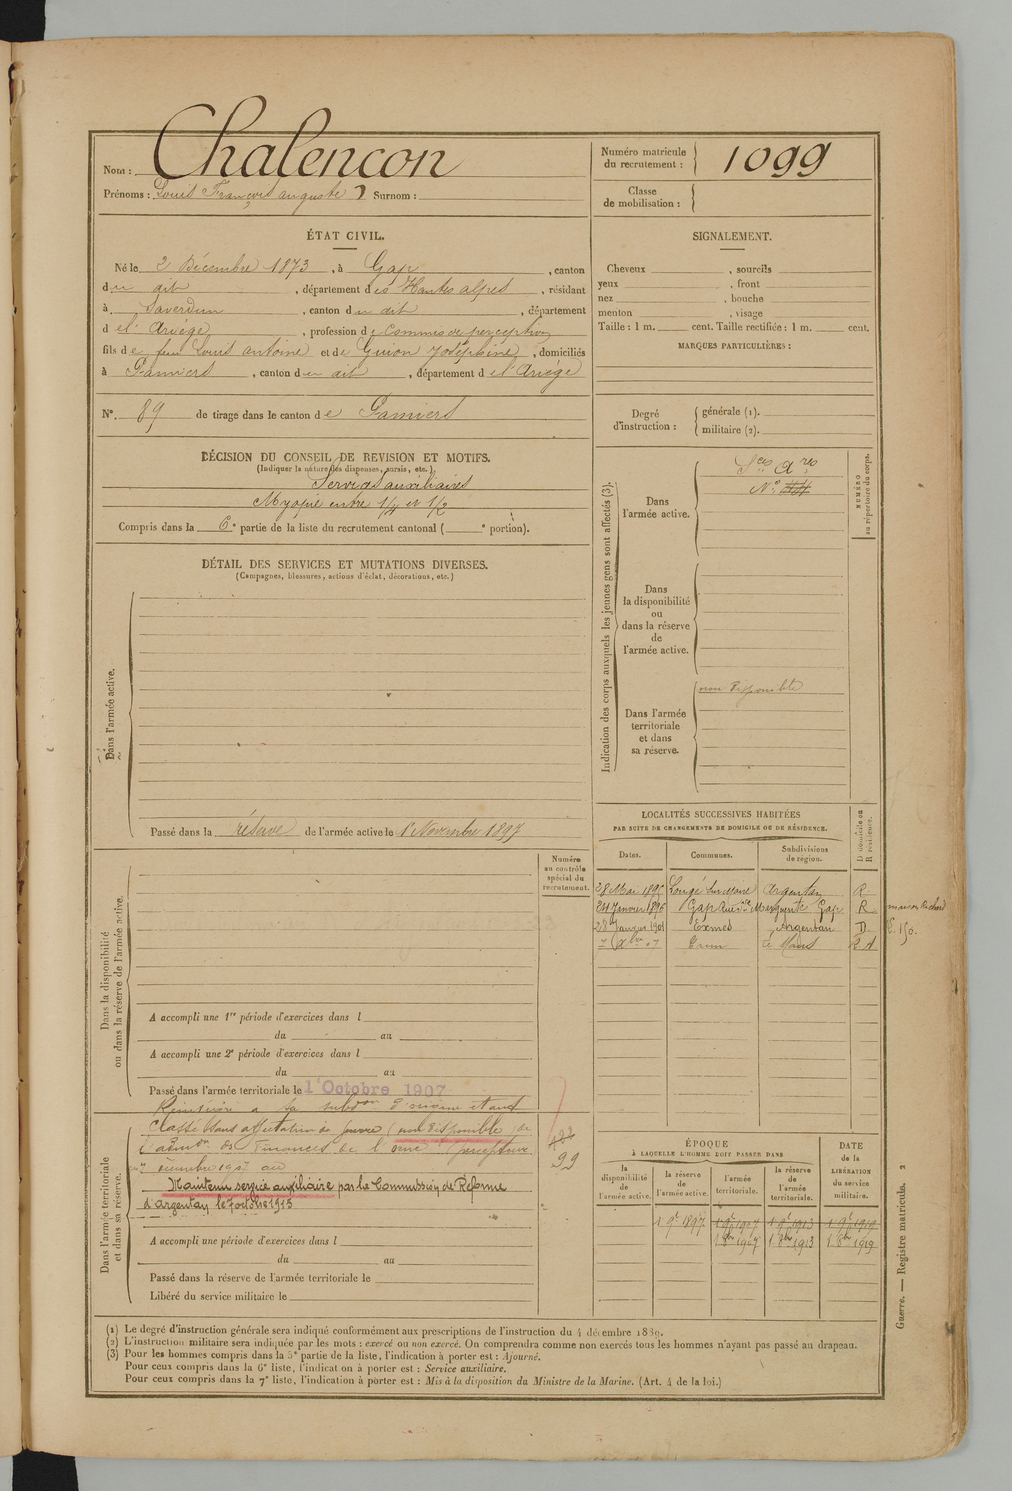 Nom : Chalencon
Prénoms : Louis François auguste Surnom :
Numéro matricule du recrutement : 1099
Classe de mobilisation :
ÉTAT CIVIL.
Né le 2 Décembre 1873, à Gap, canton
du dit, département des Hautes alpes, résidant
à Saverdun, canton du dit, département
de l'Ariège, profession de Commis de perception
fils de feu Louis antoine et de Guion Joséphine, domiciliés
à Pamiers, canton du dit, département de l'Ariège
N° 89 de tirage dans le canton de Pamiers
DÉCISION DU CONSEIL DE REVISION ET MOTIFS.
(Indiquer la nature des dispenses, sursis, etc.)
Services auxiliaires
Myopie entre 1/4 et 1/2
Compris dans la 6e partie de la liste du recrutement cantonal ( e portion).
DÉTAIL DES SERVICES ET MUTATIONS DIVERSES.
(Campagnes, blessures, actions d'éclat, décorations, etc.)
Dans l'armée active.
Passé dans la réserve de l'armée active le 1 Novembre 1897
Numéro au contrôle spécial du recrutement.
Dans la disponibilité ou dans la réserve de l'armée active.
A accompli une 1re période d'exercices dans l
du au
A accompli une 2e période d'exercices dans l
du au
Passé dans l'armée territoriale le 1er Octobre 1907
Dans l'armée territoriale et dans sa réserve.
Réintégré à sa subdon d'origine étant
Classé dans affectation de guerre (non disponible) de
l'admon des Finances de l'orne
7 décembre 1907 au
99
Maintenu service auxiliaire par la Commission de Réforme
d'argentan le 7 octobre 1915
A accompli une période d'exercices dans l
du au
Passé dans la réserve de l'armée territoriale le
Libéré du service militaire le
SIGNALEMENT.
Cheveux , sourcils
yeux , front
nez , bouche
menton , visage
Taille : 1 m. cent. Taille rectifiée : 1 m. cent.
MARQUES PARTICULIÈRES :
Degré d'instruction : générale (1).
militaire (2).
Indication des corps auxquels les jeunes gens sont affectés (3).
NUMÉRO au répertoire du corps.
Dans l'armée active.
Ses Ares
N°
Dans la disponibilité ou dans la réserve de l'armée active.
Dans l'armée territoriale et dans sa réserve.
non disponible
LOCALITÉS SUCCESSIVES HABITÉES
PAR SUITE DE CHANGEMENTS DE DOMICILE OU DE RÉSIDENCE.
Dates. Communes. Subdivisions de région. D domicile ou R résidence.
28 Mai 1895 Lougé sur Maire Argentan R
24 Janvier 1896 Gap Rue Ste Marguerite Gap R
28 Janvier 1901 Exmes Argentan D
Le Mans
ÉPOQUE
À LAQUELLE L'HOMME DOIT PASSER DANS
la disponibilité de l'armée active. la réserve de l'armée active. l'armée territoriale. la réserve de l'armée territoriale. DATE de la LIBÉRATION du service militaire.
1 9e 1897 1 9e 1907 1 9e 1913 1 9e 1919
1 8bre 1907 1 8bre 1913 1 8bre 1919
Guerre. — Registre matricule. 2
(1) Le degré d'instruction générale sera indiqué conformément aux prescriptions de l'instruction du 4 décembre 1889.
(2) L'instruction militaire sera indiquée par les mots : exercé ou non exercé. On comprendra comme non exercés tous les hommes n'ayant pas passé au drapeau.
(3) Pour les hommes compris dans la 5e partie de la liste, l'indication à porter est : Ajourné.
Pour ceux compris dans la 6e liste, l'indication à porter est : Service auxiliaire.
Pour ceux compris dans la 7e liste, l'indication à porter est : Mis à la disposition du Ministre de la Marine. (Art. 4 de la loi.)